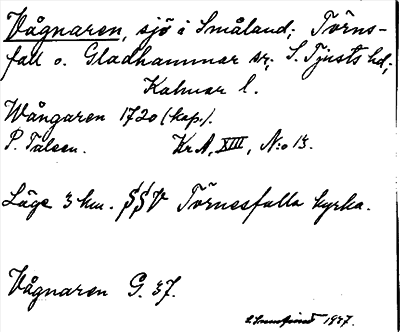 Vågnaren, sjö i Småland; Törns-
fall o. Gladhammar sr; S. Tjusts hd;
Kalmar l.
Wångaren 1720 (kop).
P. Taleen. Kr A, XIII, N:o 13.
Läge 3 km. SSV Törnesfalla kyrka.
Vågnaren G. 37.
1937.